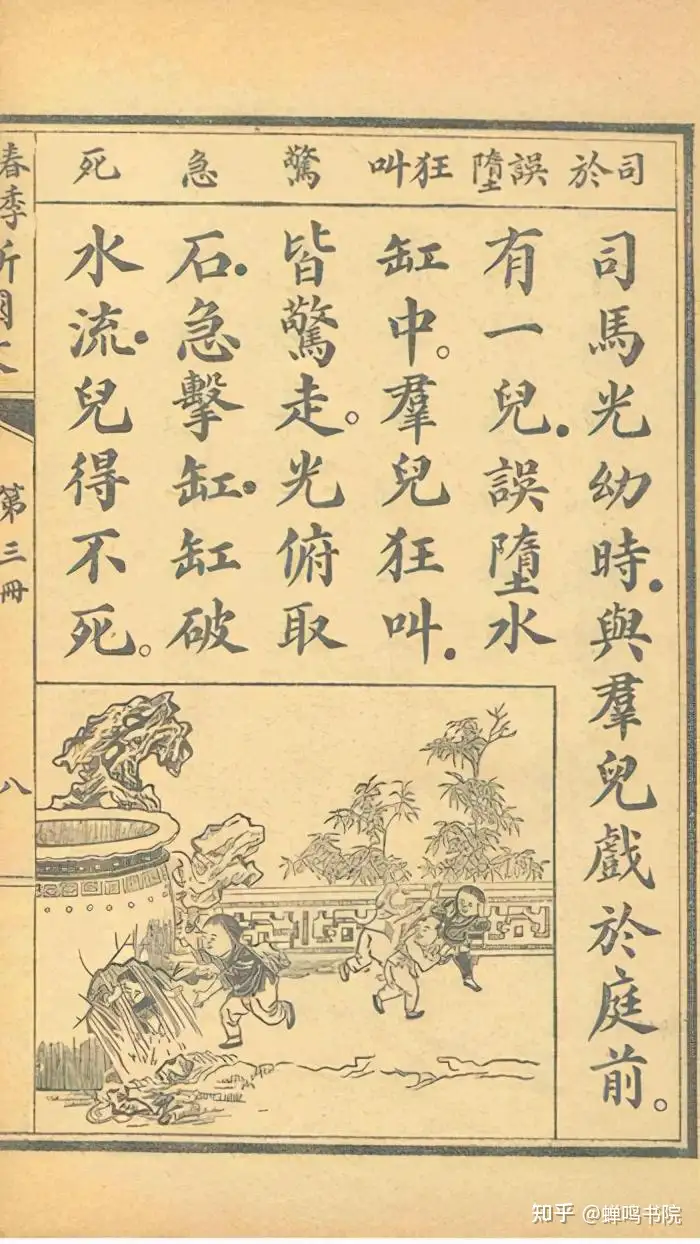 司於 誤墮 狂叫 驚 急 死
司馬光幼時．與羣兒戲於庭前。
有一兒．誤墮水
缸中。羣兒狂叫．
皆驚走。光俯取
石．急擊缸．缸破
水流．兒得不死。
春季
第三冊
八
知乎 @蝉鸣书院